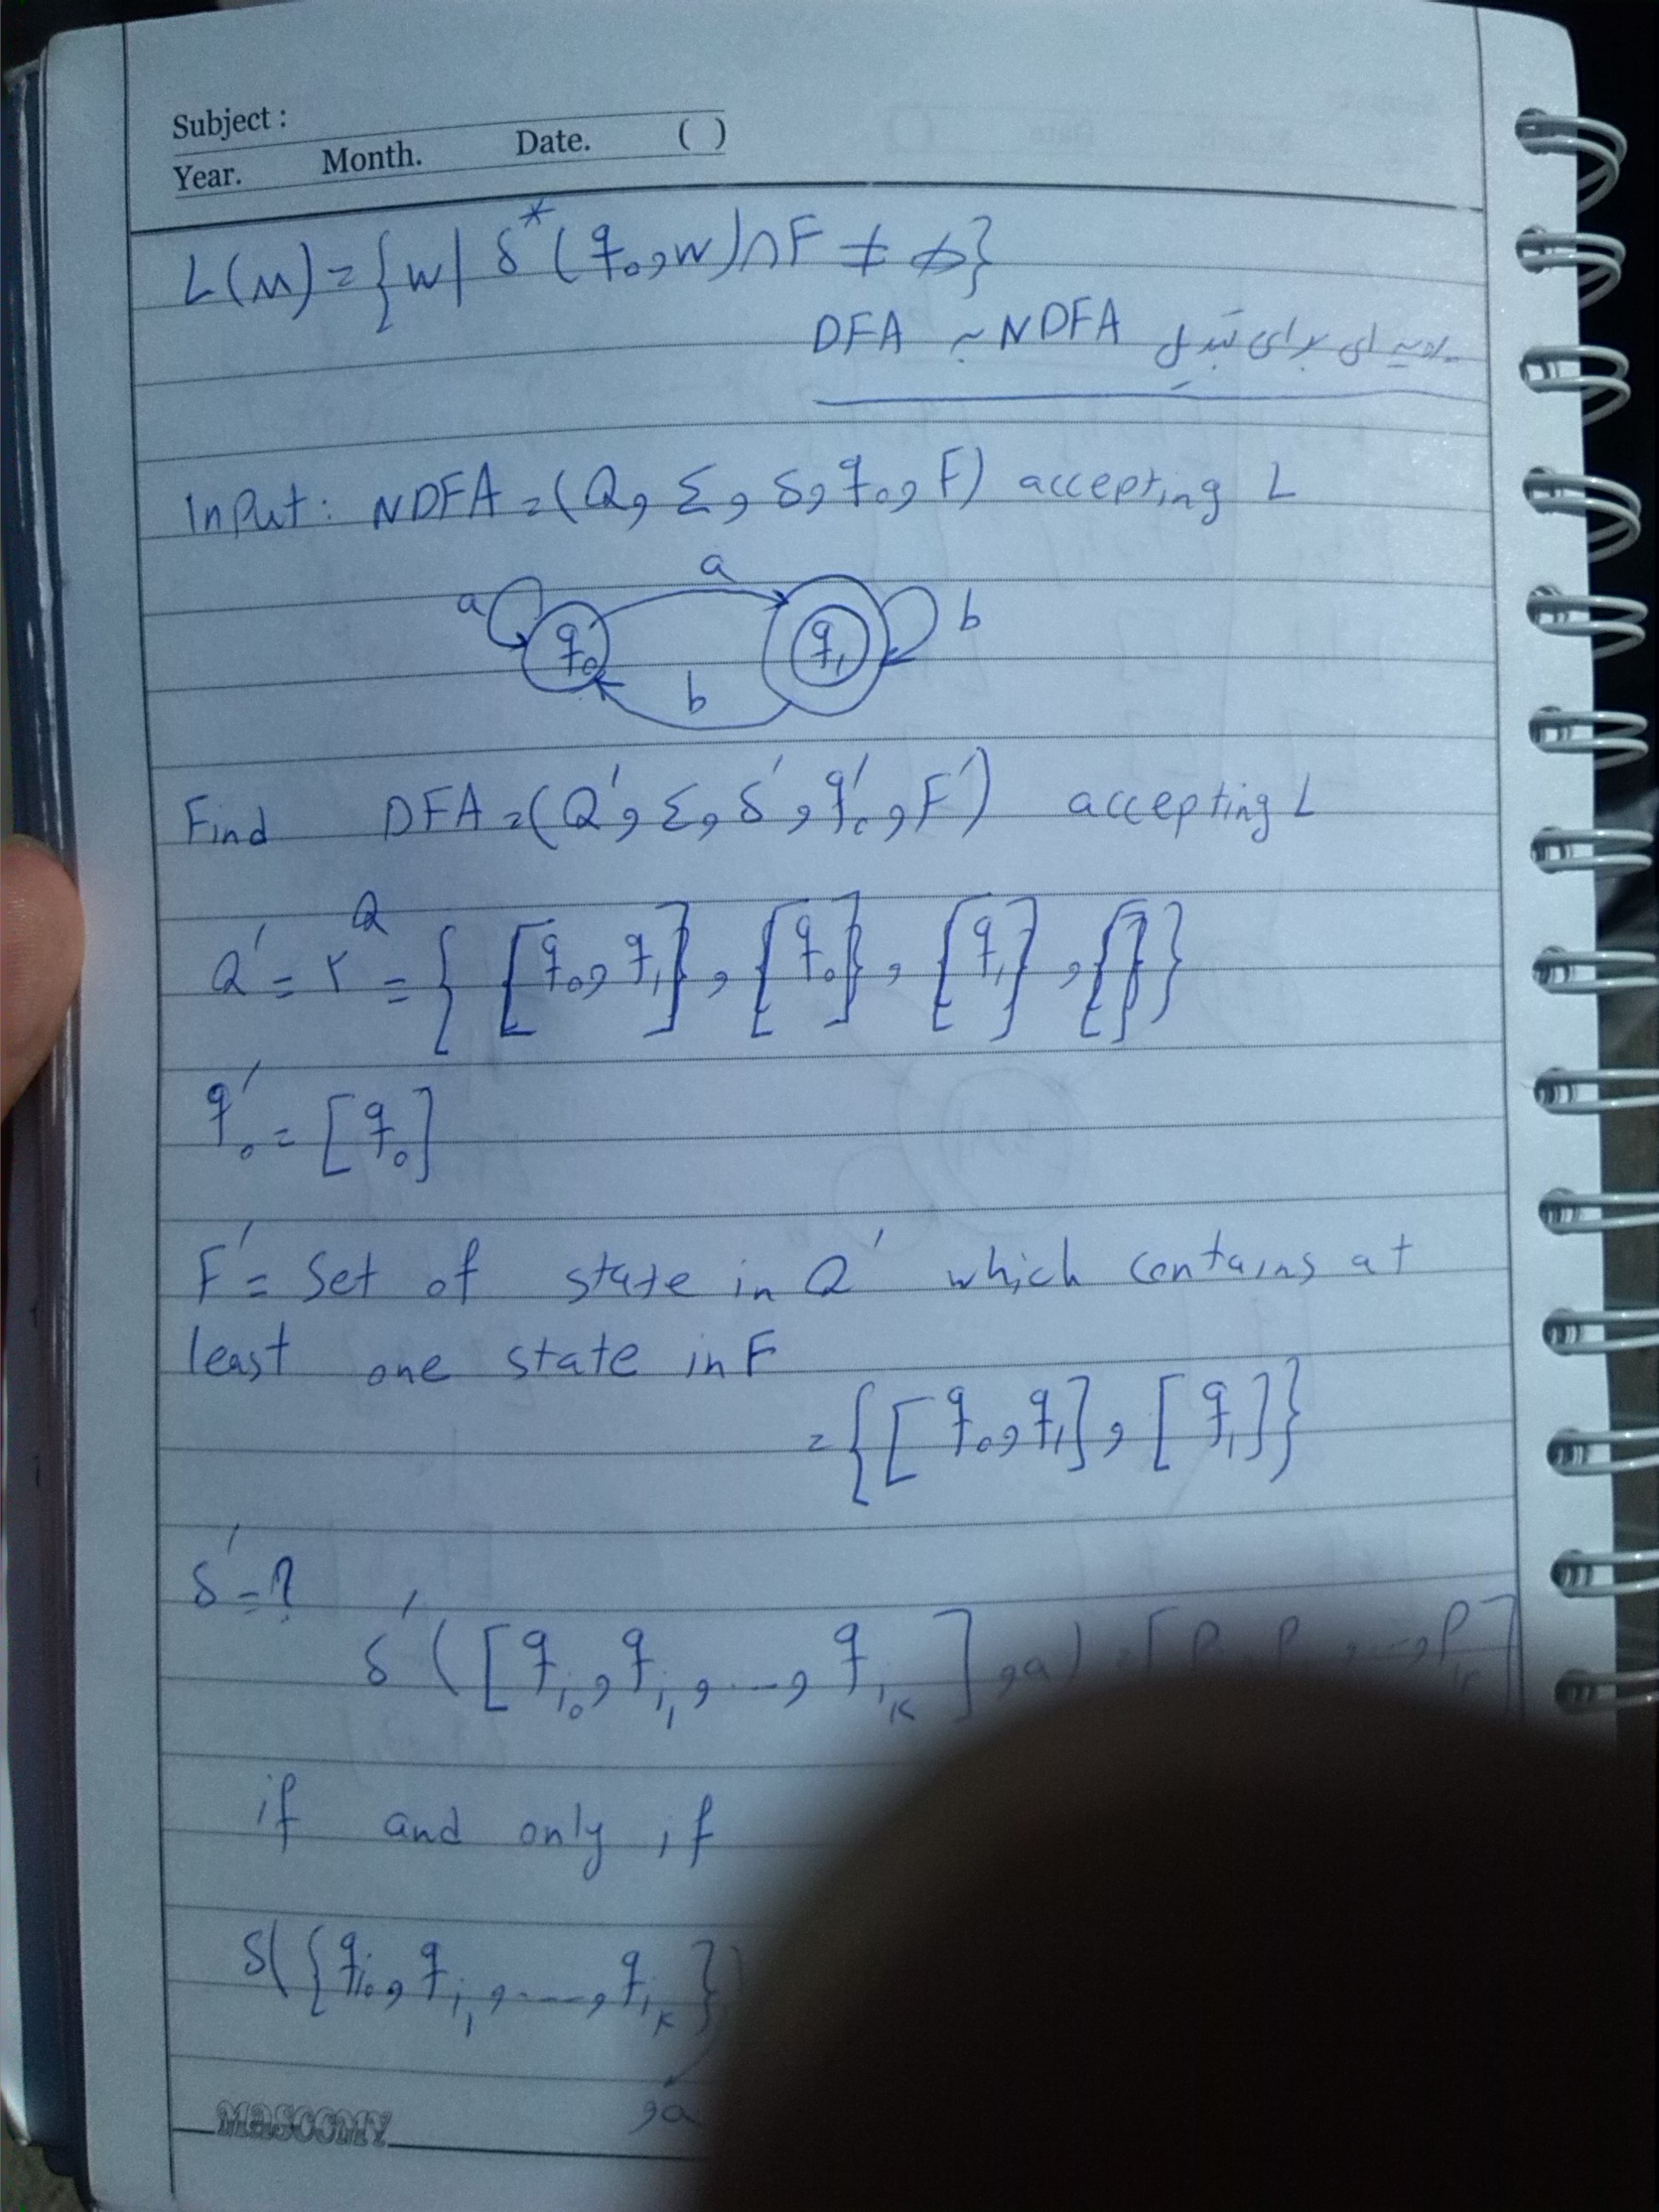 Subject :
Year. Month. Date. ( )
L(M) = {w | δ*(q₀, w) ∩ F ≠ ∅}
برای تبدیل NDFA به DFA
Input: NDFA = (Q, Σ, δ, q₀, F) accepting L
a a b
q₀ q₁
b
Find DFA = (Q', Σ, δ', q'₀, F') accepting L
Q' = ۲^Q = { [q₀, q₁], [q₀], [q₁], [] }
q'₀ = [q₀]
F' = Set of state in Q' which contains at
least one state in F
= {[q₀, q₁], [q₁]}
δ' = ?
δ'([q_i₀, q_i₁, ..., q_iₖ], a) = [P
if and only if
δ({q_i₀, q_i₁, ..., q_iₖ}
, a
MASCOMY